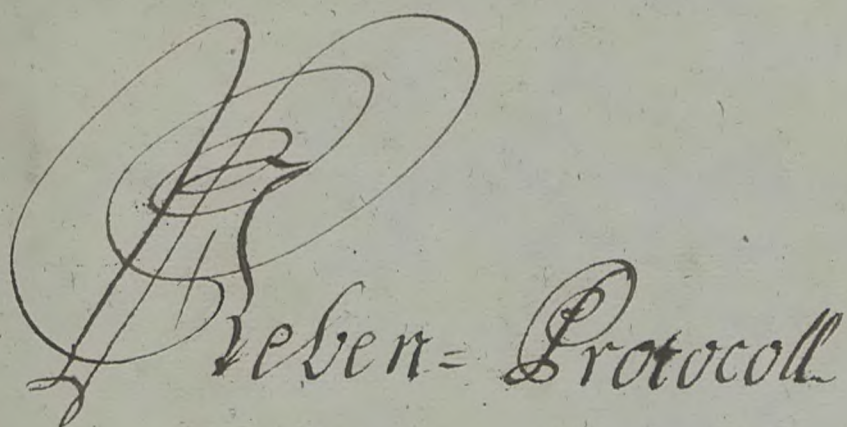 Neben= Protocoll